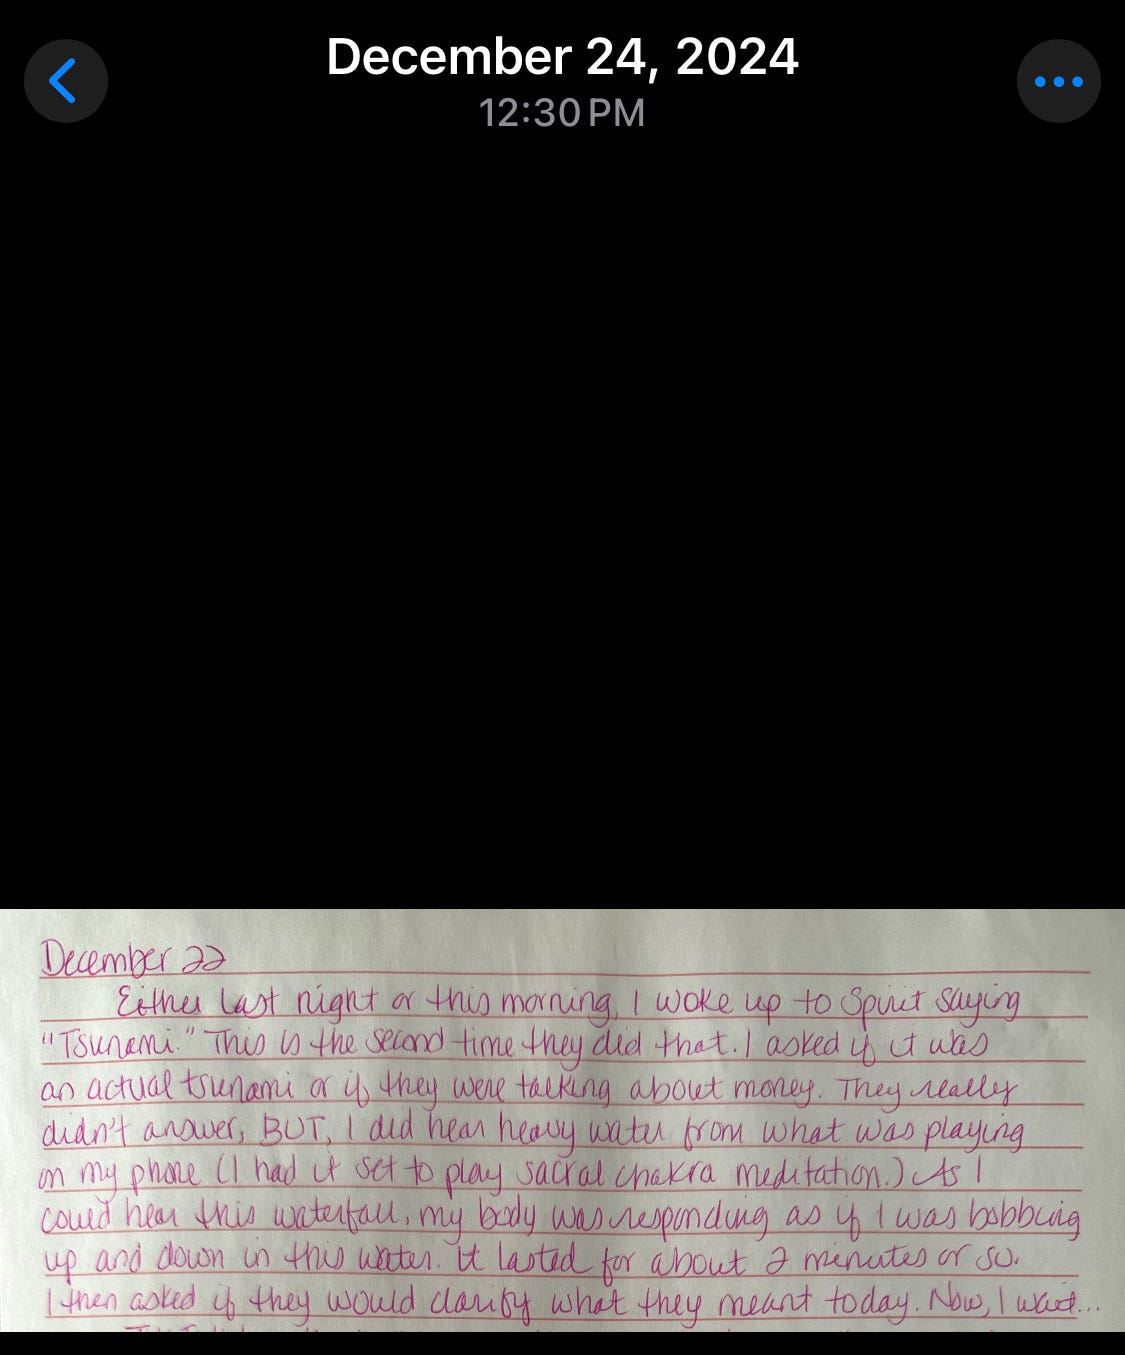 December 24, 2024
12:30 PM
December 22
Either last night or this morning, I woke up to Spirit saying
"Tsunami." This is the second time they did that. I asked if it was
an actual tsunami or if they were talking about money. They really
didn't answer, BUT, I did hear heavy water from what was playing
on my phone (I had it set to play sacral chakra meditation.) As I
could hear this waterfall, my body was responding as if I was bobbing
up and down in this water. It lasted for about 2 minutes or so.
I then asked if they would clarify what they meant today. Now, I wait...